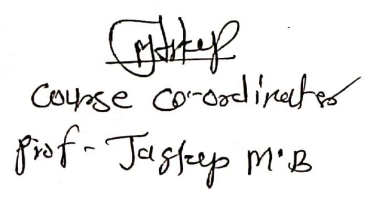 Course co-ordinator
Prof - Jagtap M.B